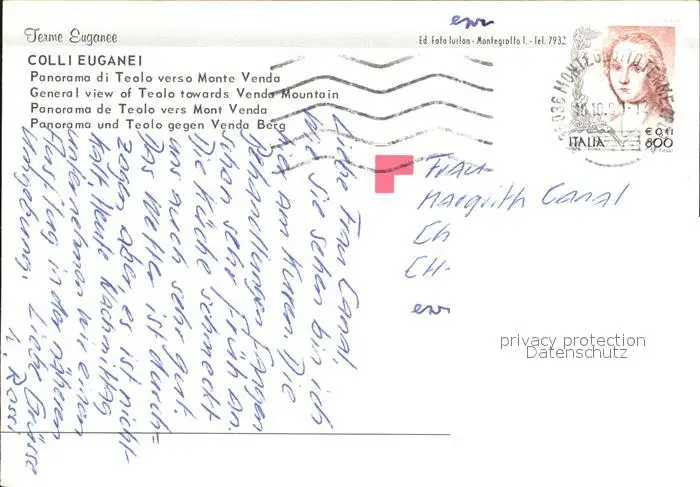 Terme Euganee
Ed. Foto Turlon - Montegrotto T. - Tel. 7932
COLLI EUGANEI
Panorama di Teolo verso Monte Venda
General view of Teolo towards Venda Mountain
Panorama de Teolo vers Mont Venda
Panorama und Teolo gegen Venda Berg
ITALIA
€ 0,41
800
Frau
Margrith Canal
CH-
Liebe Frau Canal
Wie Sie sehen bin ich
hier am Kuren. Die
Behandlungen fangen
schon sehr früh an.
Die Küche schmeckt
uns auch sehr gut.
Das Wetter ist durch=
zogen aber, es ist nicht
kalt. Heute Nachmittag
unternehmen wir einen
Ausflug in der näheren
Umgebung. Liebe Grüsse
Rossi
privacy protection
Datenschutz